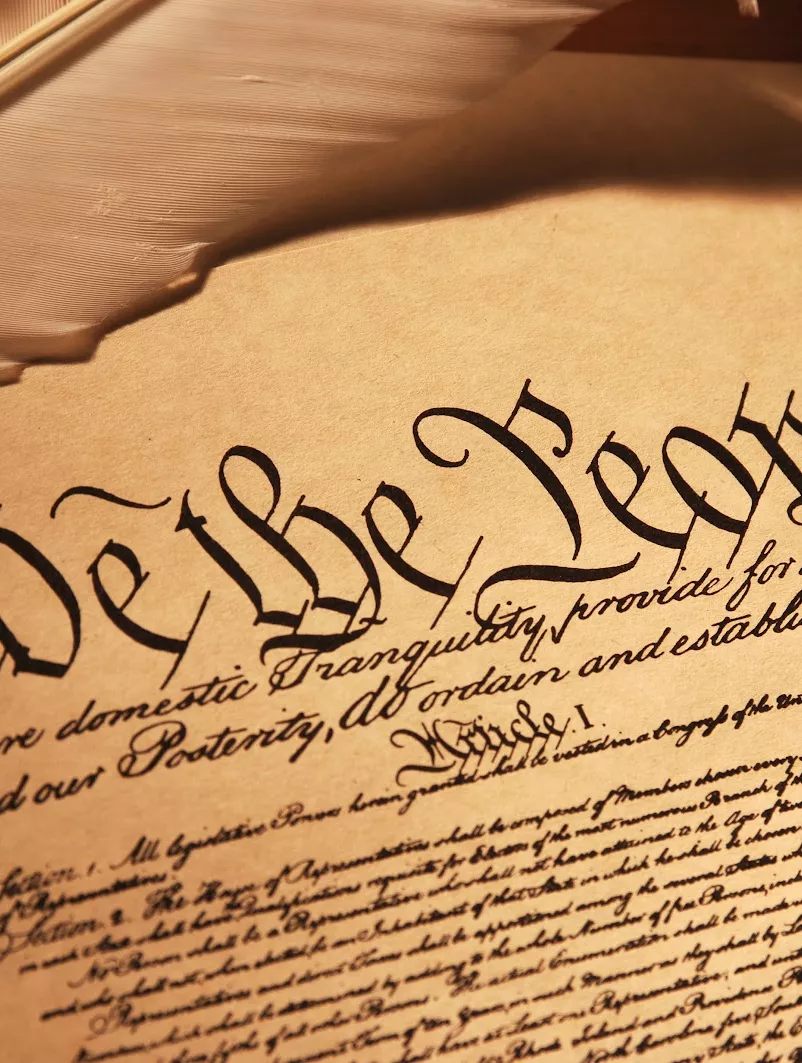 We the Peop
re domestic Tranquility, provide for
d our Posterity, do ordain and establi
Article. I.
Section. 1. All legislative Powers herein granted shall be vested in a Congress of the Un
of Representatives.
Section. 2. The House of Representatives shall be composed of Members chosen every
in each State shall have Qualifications requisite for Electors of the most numerous Branch of th
No Person shall be a Representative who shall not have attained to the Age of twe
and who shall not, when elected, be an Inhabitant of that State in which he shall be chosen
Representatives and direct Taxes shall be apportioned among the several States wh
Numbers, which shall be determined by adding to the whole Number of free Persons, incl
of all other Persons. The actual Enumeration shall be made
Term of ten Years, in such Manner as they shall by La
shall have at Least one Representative; and unt
Rhode Island and Providence P
North Carolina five, Sout
State, the E